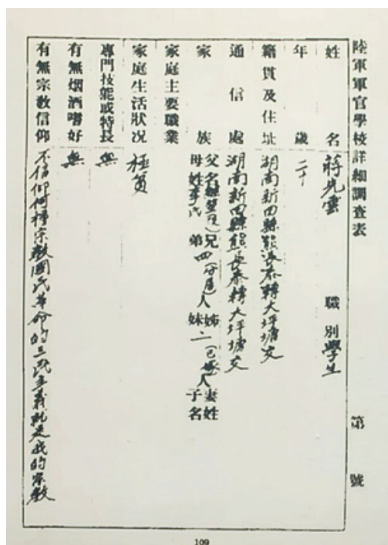 陸軍軍官學校詳細調查表　第　號
姓名　蔣先雲　職別　學生
年歲　二十
籍貫及住址　湖南新田縣熊長泰轉大坪塘交
通信處　湖南新田縣熊長泰轉大坪塘交
家族　父名　兄　人姊　人妻姓
母姓李氏　弟四　人妹二　人子名
家庭主要職業
家庭生活狀況　極貧
專門技能或特長　無
有無烟酒嗜好　無
有無宗教信仰　不信仰何種宗教國民革命的三民主義就是我的宗教
109